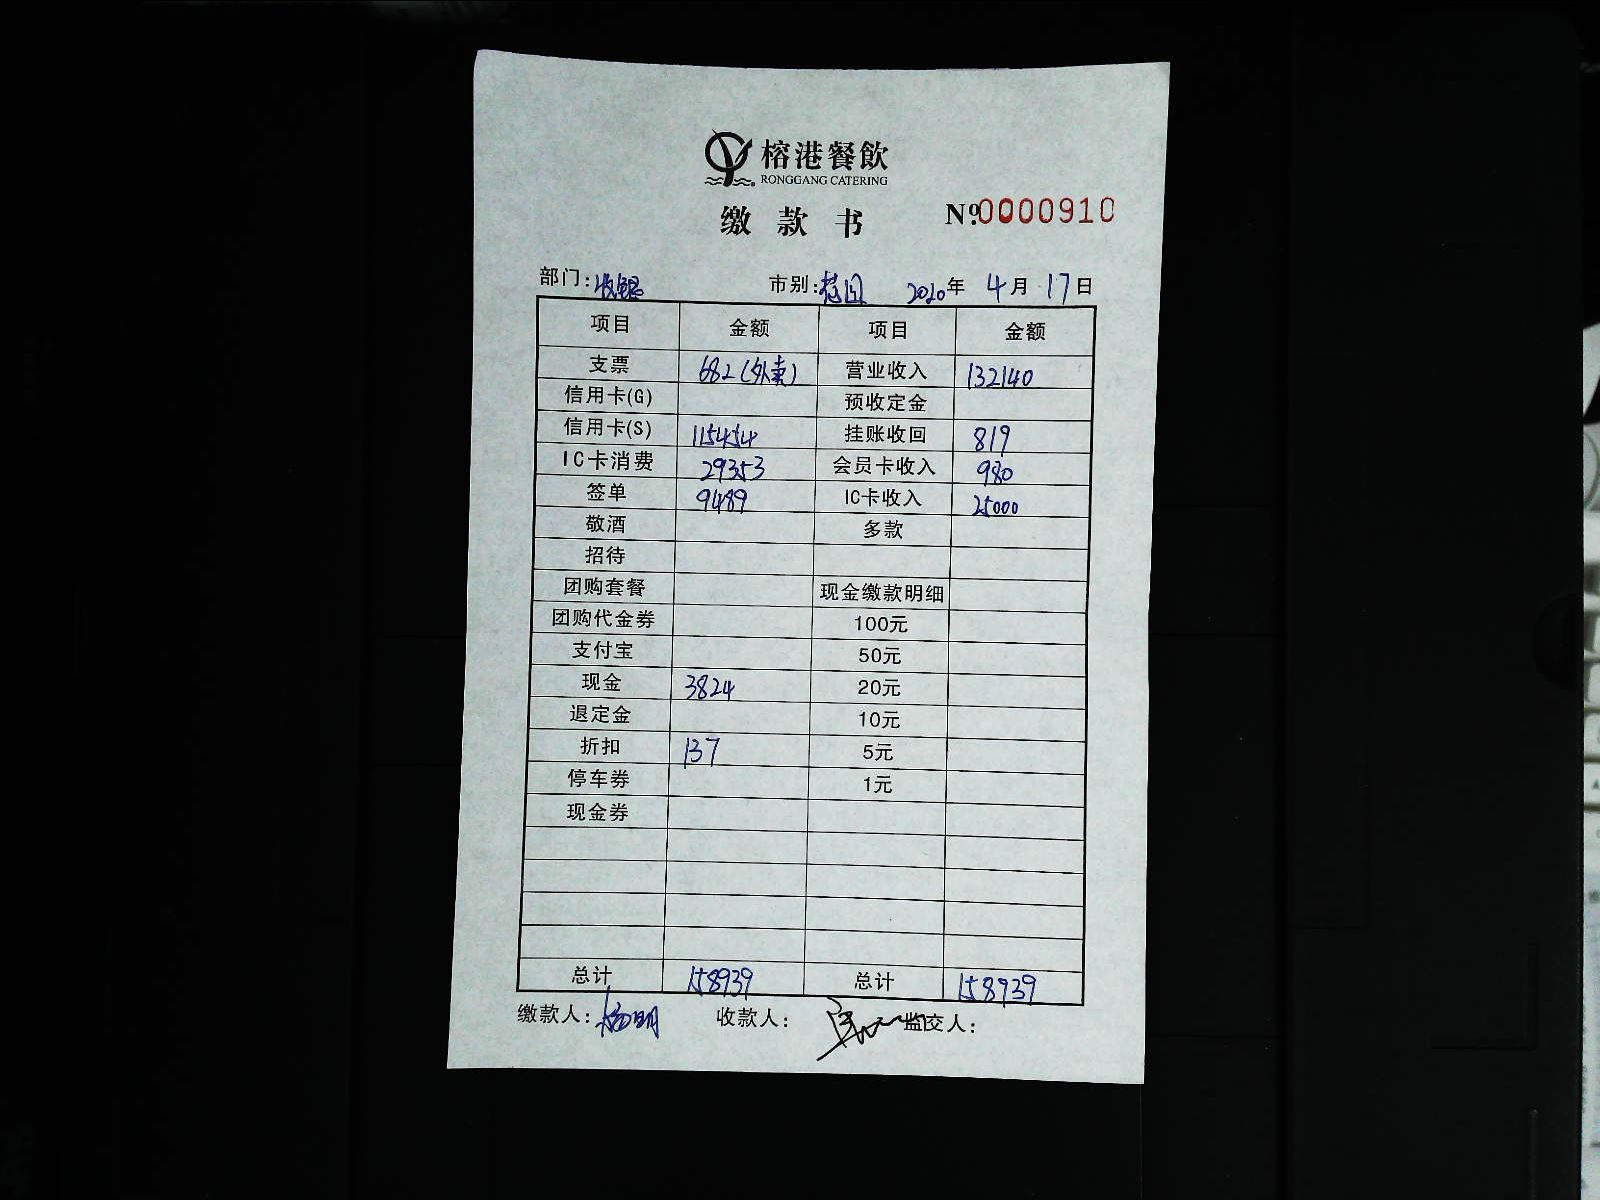 榕港餐飲
RONGGANG CATERING
缴款书 №0000910
部门:收银 市别: 2020年4月17日
项目 金额 项目 金额
支票 682(外卖) 营业收入 132140
信用卡(G) 预收定金
信用卡(S) 115454 挂账收回 819
IC卡消费 29353 会员卡收入 980
签单 9489 IC卡收入 25000
敬酒 多款
招待
团购套餐 现金缴款明细
团购代金券 100元
支付宝 50元
现金 3824 20元
退定金 10元
折扣 137 5元
停车券 1元
现金券
总计 158939 总计 158939
缴款人: 收款人: 监交人: